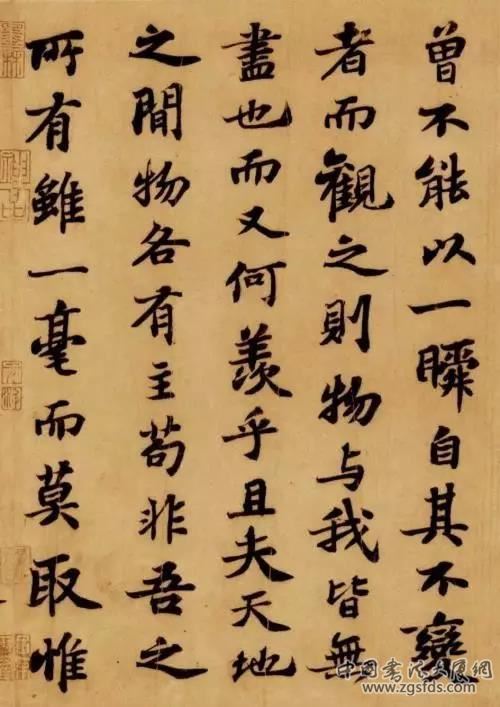 曾不能以一瞬自其不變
者而觀之則物与我皆無
盡也而又何羨乎且夫天地
之間物各有主苟非吾之
所有雖一毫而莫取惟
中国书法艺展网
www.zgsfds.com